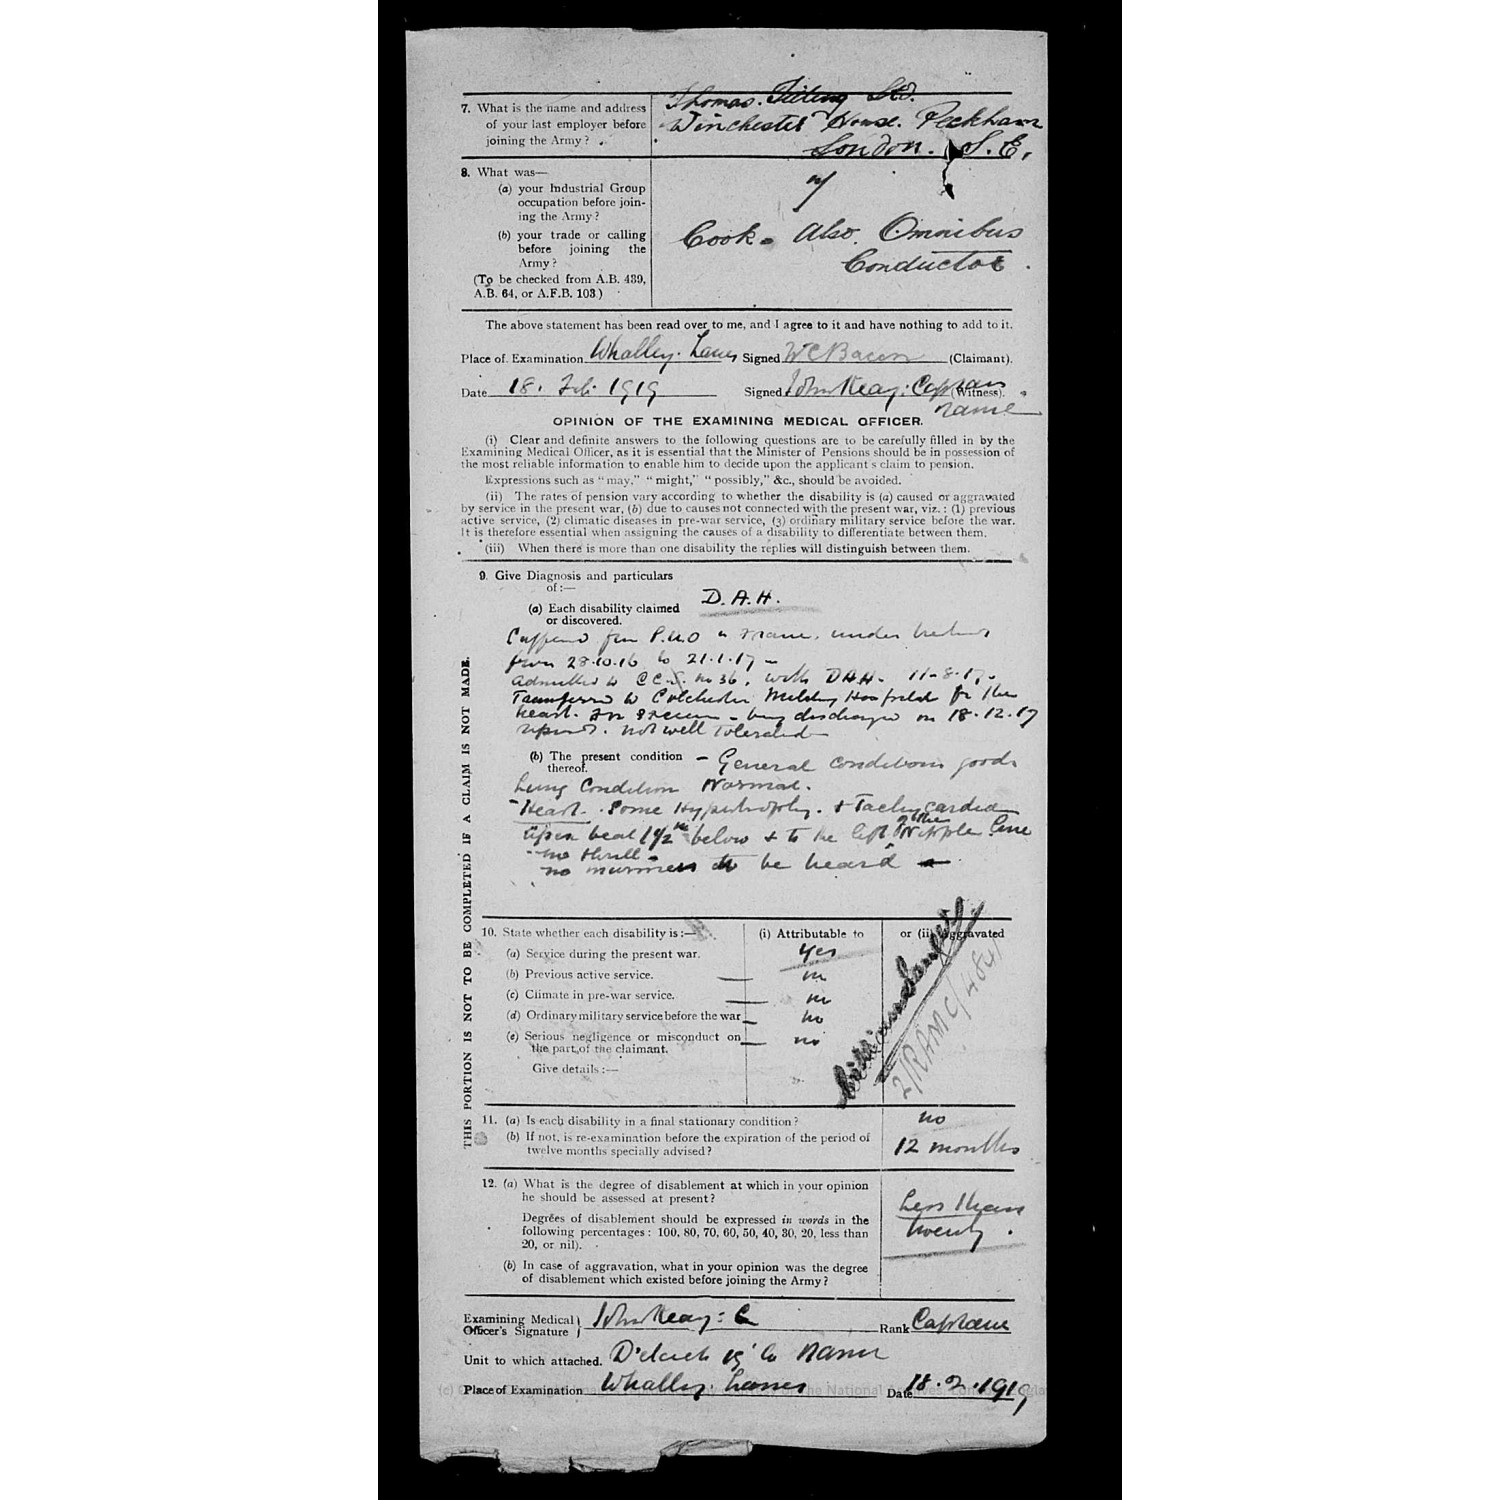 7. What is the name and address
of your last employer before
joining the Army?
Thomas. Tilling Ltd.
Winchester House. Peckham
London. S. E.
8. What was—
(a) your Industrial Group
occupation before join-
ing the Army?
(b) your trade or calling
before joining the
Army?
(To be checked from A.B. 439,
A.B. 64, or A.F.B. 103.)
Cook. Also. Omnibus
Conductor.
The above statement has been read over to me, and I agree to it and have nothing to add to it.
Place of Examination Whalley. Lancs Signed W C Bacon (Claimant).
Date 18. Feb. 1919 Signed John Keay: Captain (Witness).
OPINION OF THE EXAMINING MEDICAL OFFICER.
(i) Clear and definite answers to the following questions are to be carefully filled in by the
Examining Medical Officer, as it is essential that the Minister of Pensions should be in possession of
the most reliable information to enable him to decide upon the applicant's claim to pension.
Expressions such as "may," "might," "possibly," &c., should be avoided.
(ii) The rates of pension vary according to whether the disability is (a) caused or aggravated
by service in the present war, (b) due to causes not connected with the present war, viz.: (1) previous
active service, (2) climatic diseases in pre-war service, (3) ordinary military service before the war.
It is therefore essential when assigning the causes of a disability to differentiate between them.
(iii) When there is more than one disability the replies will distinguish between them.
9. Give Diagnosis and particulars
of:—
(a) Each disability claimed
or discovered.
D. A. H.
P.U.O under
from 28.10.16 to 21.1.17 –
Admitted to C.C.S. no 36, with DAH. 11-8-17.
Transferred to Colchester Military Hospital for the
heart. discharged on 18.12.17
not well tolerated
(b) The present condition
thereof.
– General condition good.
Lung Condition Normal.
Heart. Some Hypertrophy. & Tachycardia
Apex beat 1½" below & to the left of the Nipple Line
no thrill –
no murmers to be heard
THIS PORTION IS NOT TO BE COMPLETED IF A CLAIM IS NOT MADE.
10. State whether each disability is:—
(i) Attributable to or (ii) aggravated
(a) Service during the present war. Yes
(b) Previous active service. no
(c) Climate in pre-war service. no
(d) Ordinary military service before the war no
(e) Serious negligence or misconduct on
the part of the claimant. no
Give details:—
2/RAMC/
11. (a) Is each disability in a final stationary condition? no
(b) If not, is re-examination before the expiration of the period of
twelve months specially advised? 12 months
12. (a) What is the degree of disablement at which in your opinion
he should be assessed at present?
Degrees of disablement should be expressed in words in the
following percentages: 100, 80, 70, 60, 50, 40, 30, 20, less than
20, or nil).
Less than
twenty.
(b) In case of aggravation, what in your opinion was the degree
of disablement which existed before joining the Army?
Examining Medical
Officer's Signature John Keay: Rank Captain
Unit to which attached.
Place of Examination Whalley. Lancs Date 18.2.1919